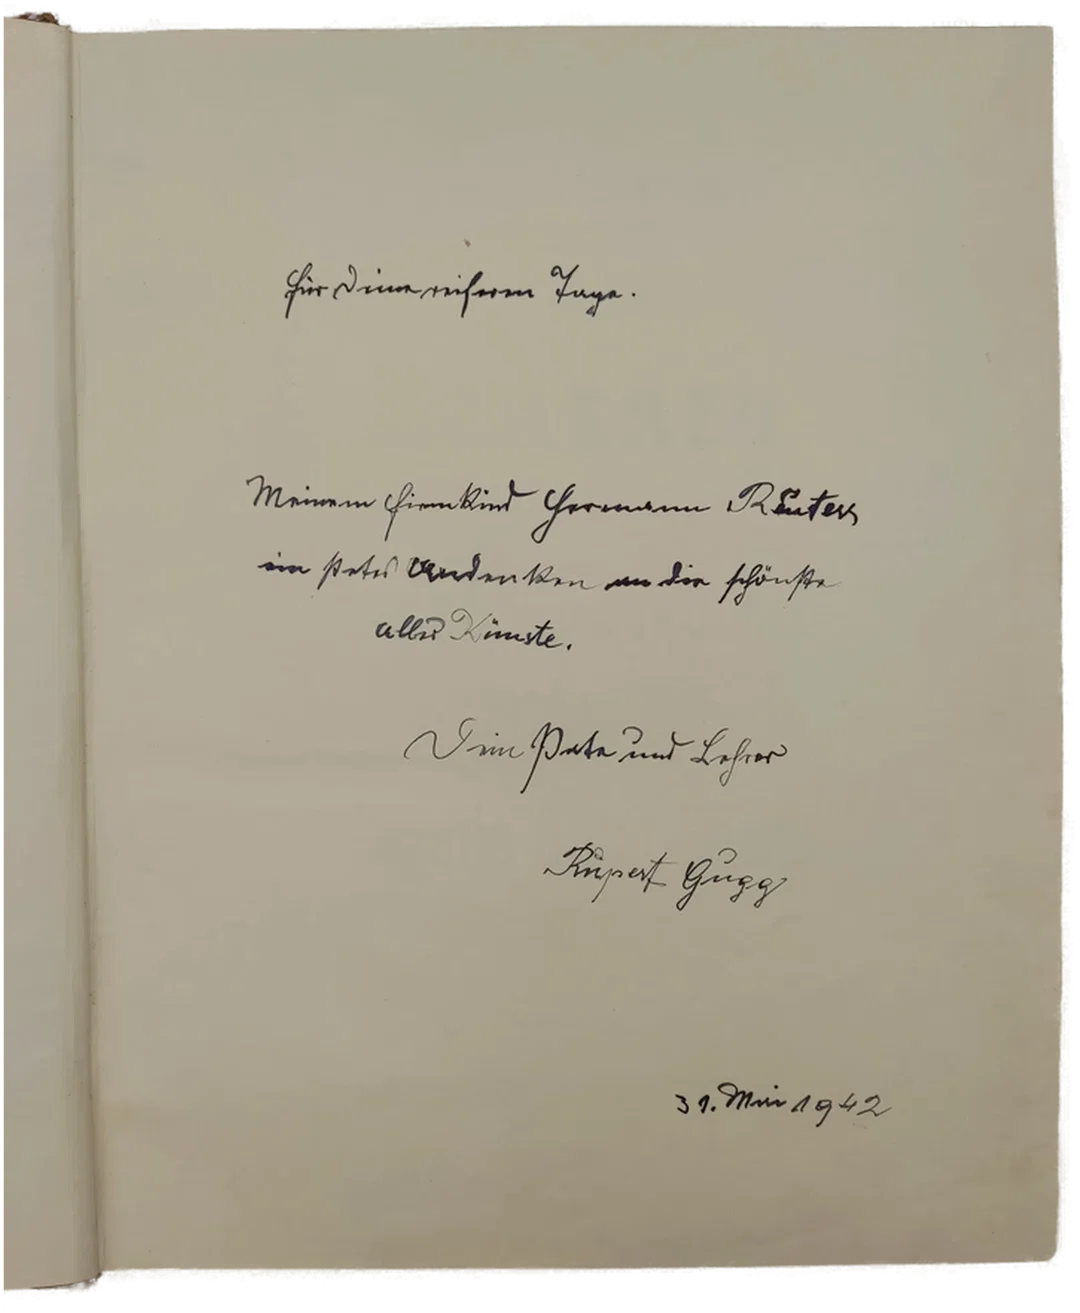 für Deine reiferen Tage.
Meinem Firmkind Hermann Reuters
ein stetes Andenken an die schönste
aller Künste.
Dein Pate und Lehrer
Rupert Gugg
31. Mai 1942